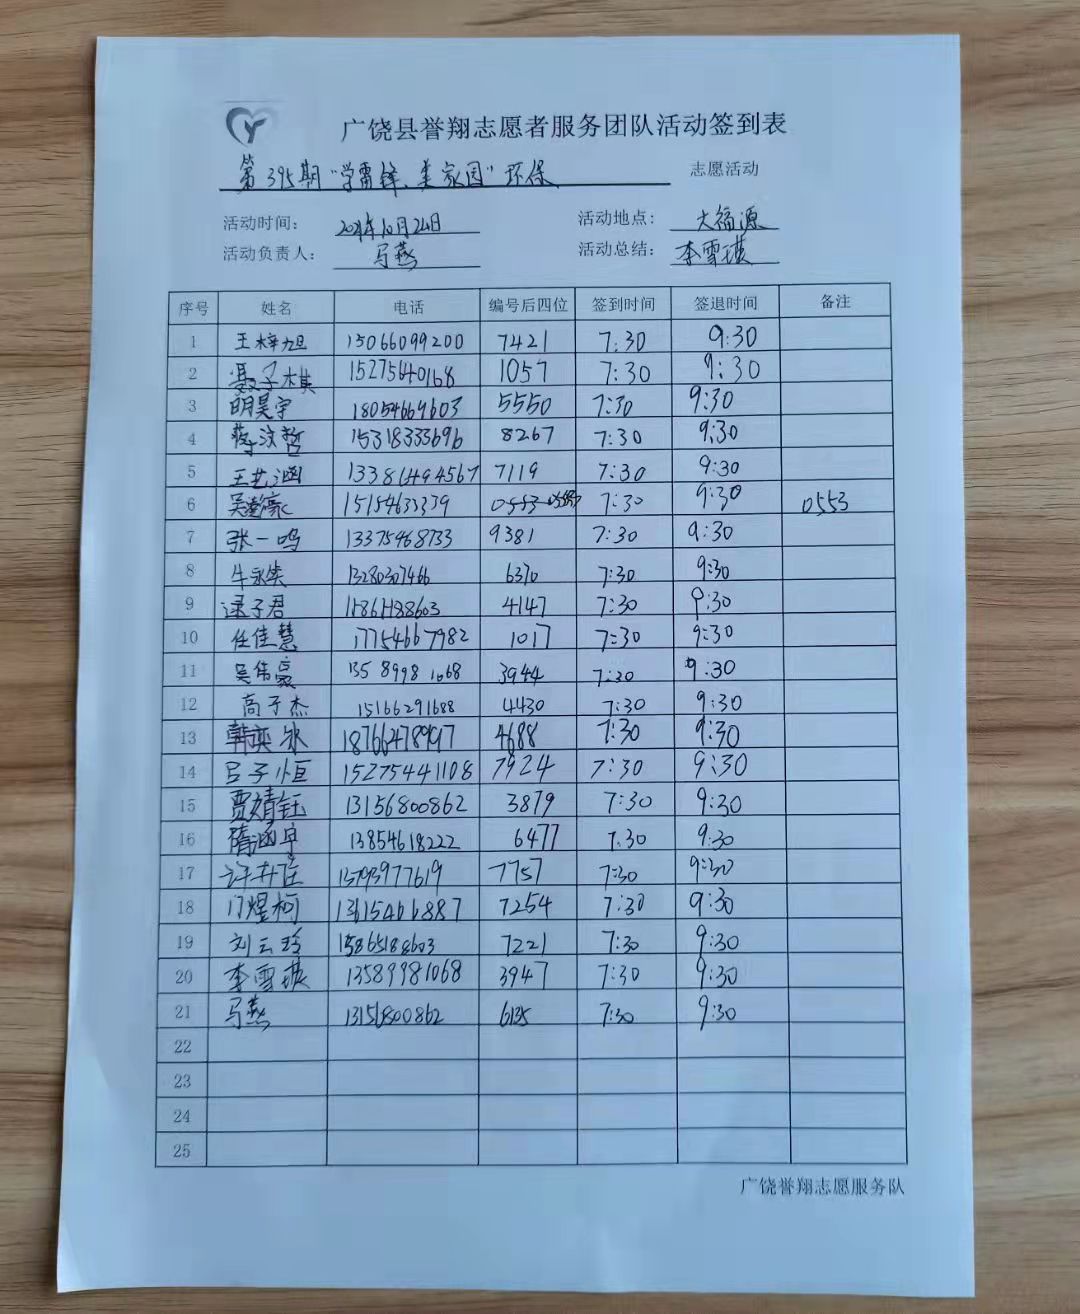 广饶县誉翔志愿者服务团队活动签到表
第395期“学雷锋、美家园”环保 志愿活动
活动时间： 2021年10月24日 活动地点： 大福源
活动负责人： 马燕 活动总结： 李雪琪
序号 姓名 电话 编号后四位 签到时间 签退时间 备注
1 王梓旭 15066099200 7421 7:30 9:30
2 聂子棋 15275640168 1057 7:30 9:30
3 明昊宇 18054669603 5550 7:30 9:30
4 蒋汶哲 15318333696 8267 7:30 9:30
5 王艺涵 7119 7:30 9:30
6 15154633339 0553 7:30 9:30 0553
7 张一鸣 13375468733 9381 7:30 9:30
8 13280307466 6370 7:30 9:30
9 逯子君 4147 7:30 9:30
10 任佳慧 17754667982 1017 7:30 9:30
11 吴伟豪 3944 7:30 9:30
12 高子杰 15166291688 4430 7:30 9:30
13 韩奕冰 4688 7:30 9:30
14 吕子恒 15275441108 7924 7:30 9:30
15 贾婧钰 13156800862 3879 7:30 9:30
16 隋涵宇 13854618222 6477 7:30 9:30
17 7757 7:30 9:30
18 门煜柯 13615466887 7254 7:30 9:30
19 刘云玲 15865188603 7221 7:30 9:30
20 李雪琪 13589981068 3947 7:30 9:30
21 马燕 13156800862 6135 7:30 9:30
22
23
24
25
广饶誉翔志愿服务队